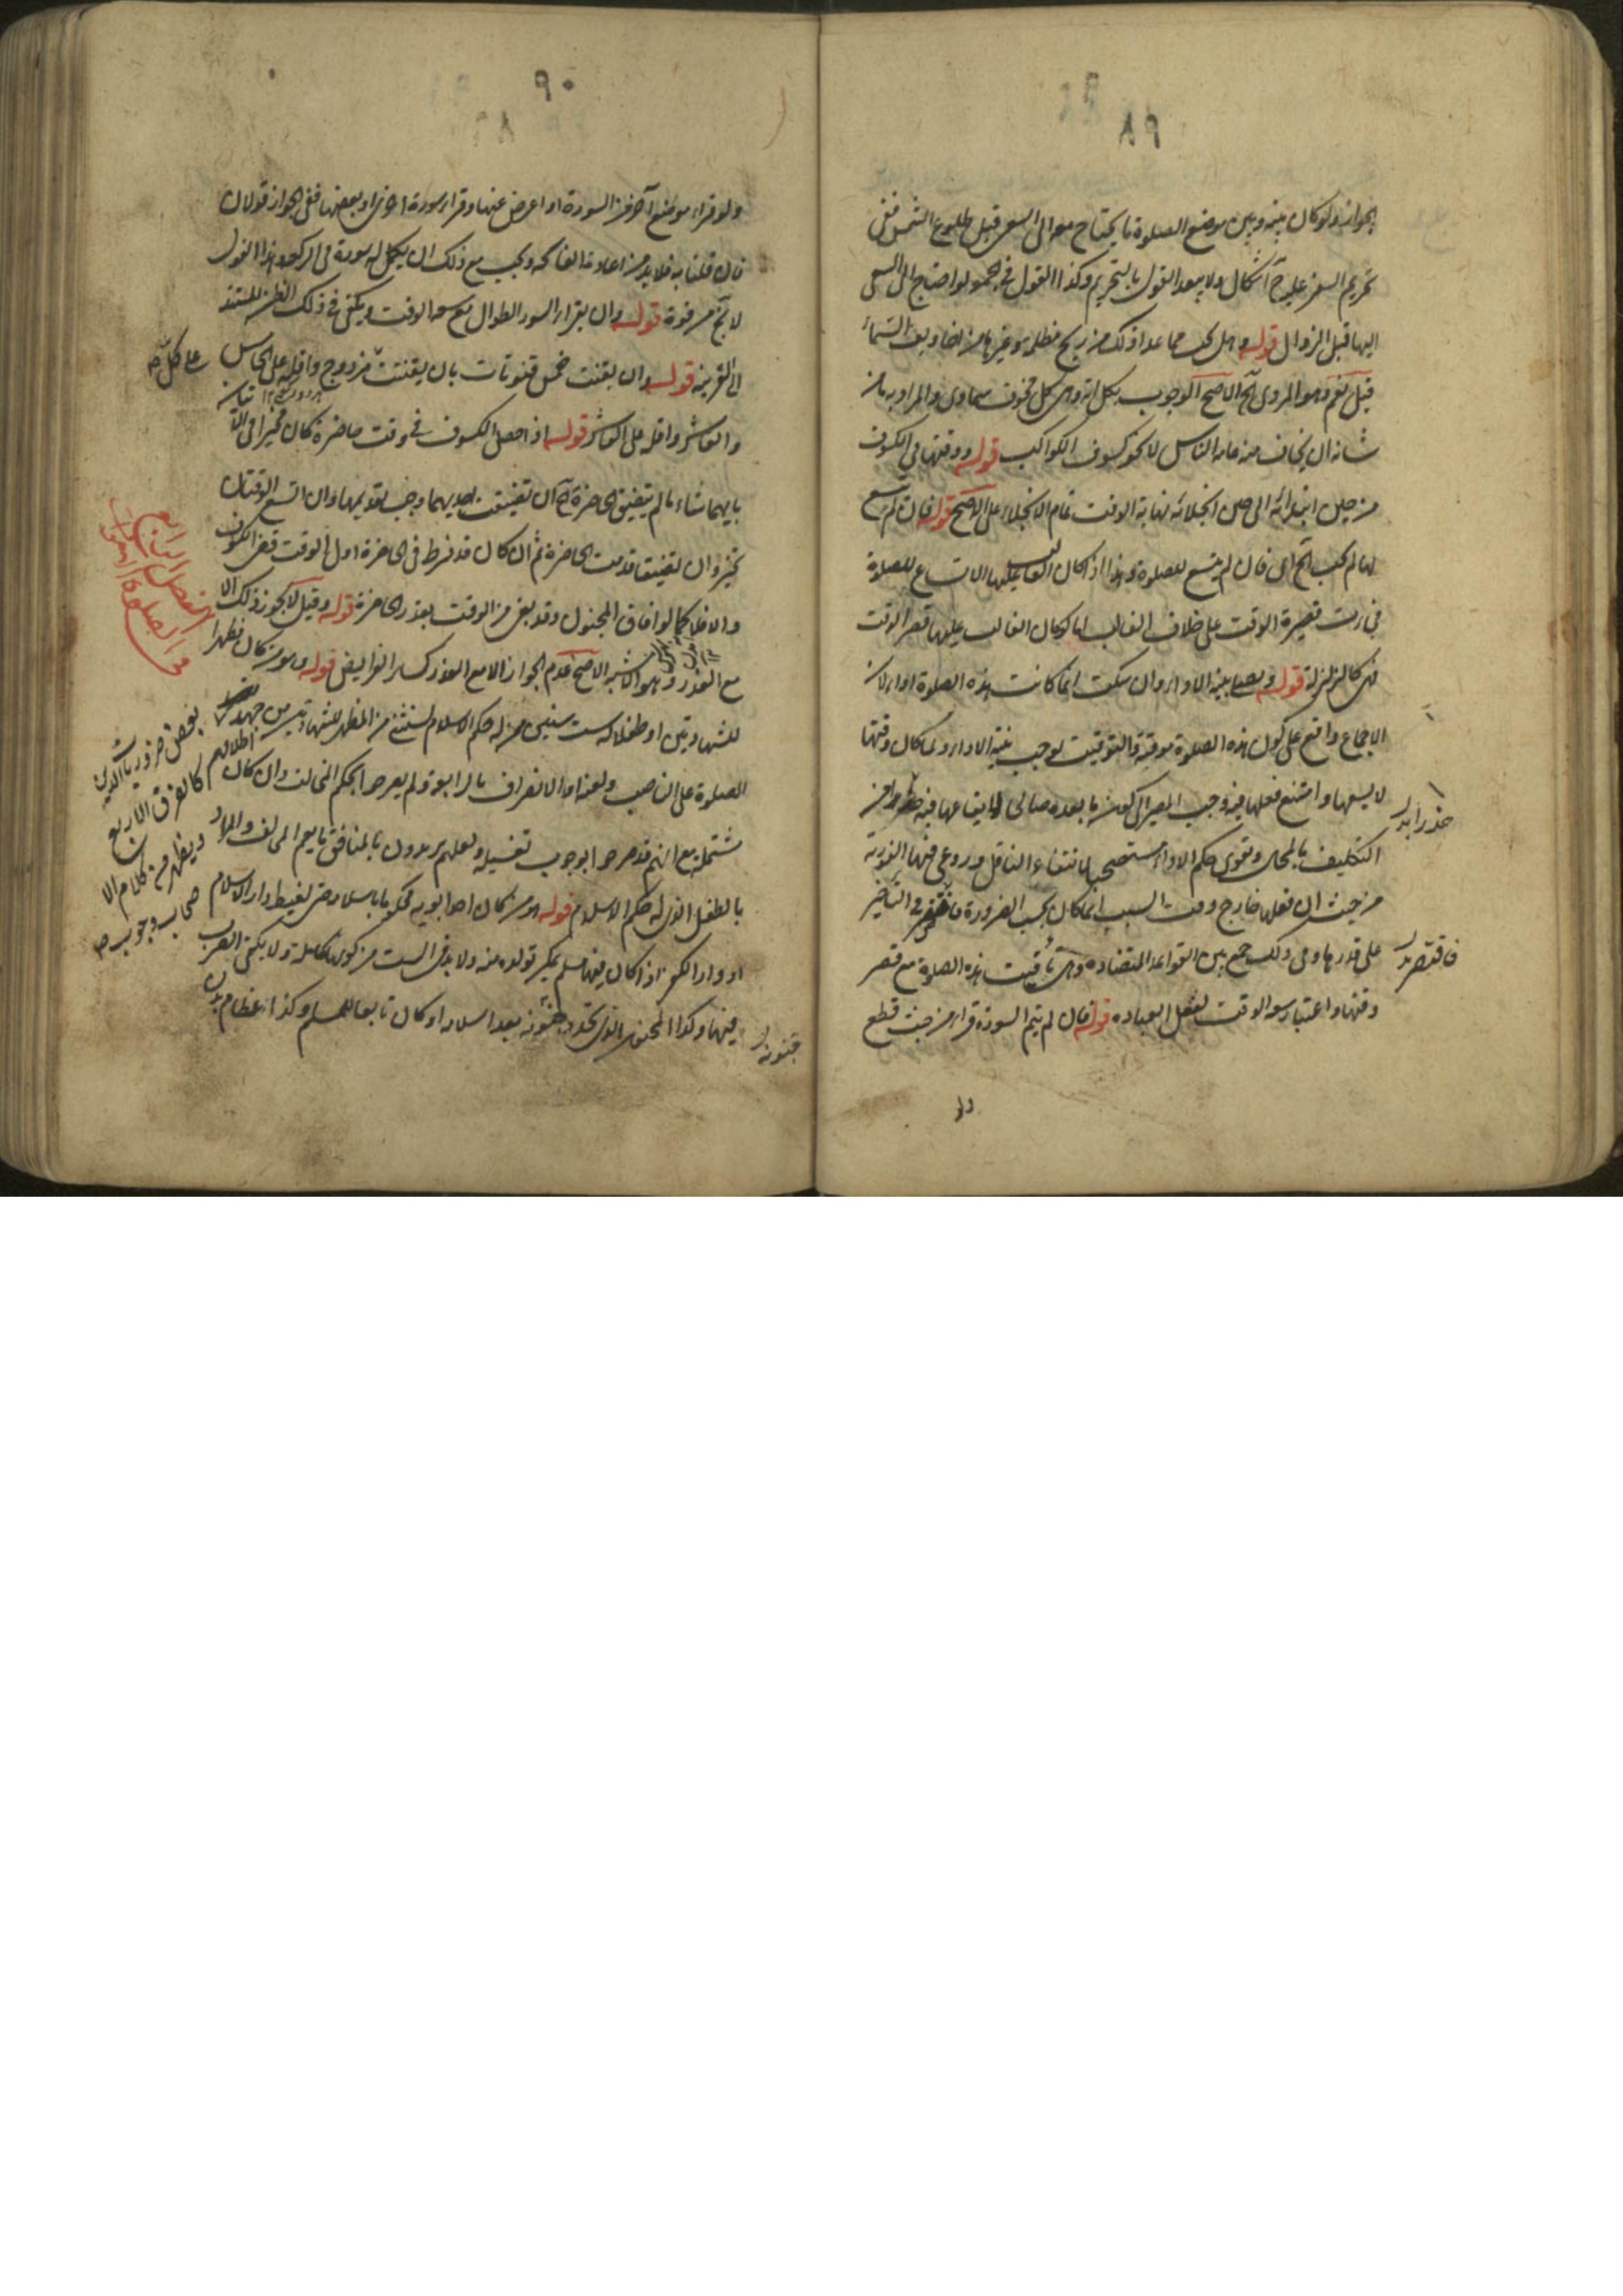 ٨٩
الجواز ولو كان بينه وبين موضع الصلوة ما يحتاج معه الى السعي قبل طلوع الشمس ففي
تحريم السفر عليه ح اشكال ولا يبعد القول بالتحريم وكذا القول في الجمعة لو احتاج الى السعي
اليها قبل الزوال قوله وهل يجب مما عدا ذلك من ريح مظلمة وغيرها من اخاويف السماء
قيل نعم وهو المروي الخ الاصح الوجوب بكل اية وهي كل مخوف سماوي والمراد به ما من
شانه ان يخاف منه عامة الناس لا نحو كسوف الكواكب قوله ووقتها في الكسوف
من حين ابتدائه الى حين انجلائه نهاية الوقت تمام الانجلاء على الاصح قوله فان لم يتسع
لها لم يجب الخ اي فان لم يتسع للصلوة وهذا اذا كان الغالب عليها الاتساع للصلوة
في قصيرة الوقت على خلاف الغالب اما لو كان الغالب عليها قصر الوقت
فهي كالزلزلة قوله ويصليها بنية الاداء وان سكنت انما كانت هذه الصلوة اداء لان
الاجماع واقع على كون هذه الصلوة موقتة والتوقيت يوجب نية الاداء ولما كان وقتها
لا يسعها وامتنع فعلها فيه وجب المصير الى كون ما بعده صالحا لايقاعها فيه حذرا من
التكليف بالمحال وبقي حكم الاداء مستصحبا لانتفاء الناقل وروعي فيها الفورية
من حيث ان فعلها خارج وقت السبب انما كان بحسب الضرورة فاقتصر في التاخير
على قدرها وفي ذلك جمع بين القواعد المتضادة وهي توقيت هذه الصلوة مع قصر
وقتها واعتبار سعة الوقت لفعل العبادة قوله فان لم يتم السورة قرا من حيث قطع
حذرا بدل
فاقتصر بدل
٩٠
ولو قراء موضع اخر من السورة او اعرض عنها وقراء سورة اخرى او بعضها ففي الجواز قولان
فان قلنا به فلا بد من اعادة الفاتحة ويجب مع ذلك ان يكمل له سورة في الركعة وهذا القول
لا يخ من قوة قوله وان يقراء السور الطوال مع سعة الوقت ويكفي في ذلك الظن المستند
الى القرينة قوله وان يقنت خمس قنوتات بان يقنت على كل مزدوج واقله على الخامس
والعاشر واقله على العاشر قوله اذا حصل الكسوف في وقت حاضرة كان مخيرا في الاتيان
بايهما شاء ما لم يتضيق الحاضرة الخ ان تضيقت احديهما وجب تقديمها وان اتسع الوقتان
تخير وان تضيقتا قدمت الحاضرة ثم ان كان قد فرط في الحاضرة اول الوقت قضى الكسوف
والا فلا كما لو افاق المجنون وقد بقي من الوقت بقدر الحاضرة قوله وقيل لا يجوز ذلك الا
مع العذر وهو الاشبه الاصح عدم الجواز الا مع العذر كساير الفرايض قوله وهو من كان مظهرا
للشهادتين او طفلا له ست سنين ممن له حكم الاسلام يستثنى من المظهر للشهادتين من جحد
الصلوة على الناصب
مشتملة مع انهم قد صرحوا بوجوب تغسيله ولعلهم يريدون بالمنافق ما يعم المخالف والمراد
بالطفل الذي له حكم الاسلام قوله من كان احد ابويه محكوما باسلامه حتى لقيط دار الاسلام
او دار الكفر اذا كان فيها مسلم يمكن تولده منه ولا بد في الست من كونها كاملة ولا يكفي القرب
فيها وكذا المجنون الذي تجدد جنونه بعد اسلامه او كان تابعا للمسلم وكذا عظام
على كل صح
الفصل الرابع
في الصلوة على الاموات
بعض ضروريات الدين
كالفرق الاربع
ويظهر من كلام الا
صحاب وجوب صح
جنونه